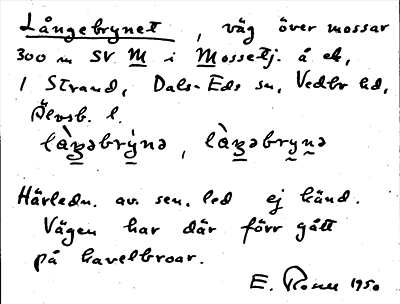 Långebrynet, väg över mossar
300 m SV M i Mossetj. å ek,
1 Strand, Dals-Eds sn, Vedbo hd,
Älvsb. l.
làŋəbrýnə, làŋəbrynə
Härledn. av sen. led ej känd.
Vägen har där förr gått
på kavelbroar.
E. Rosell 1950